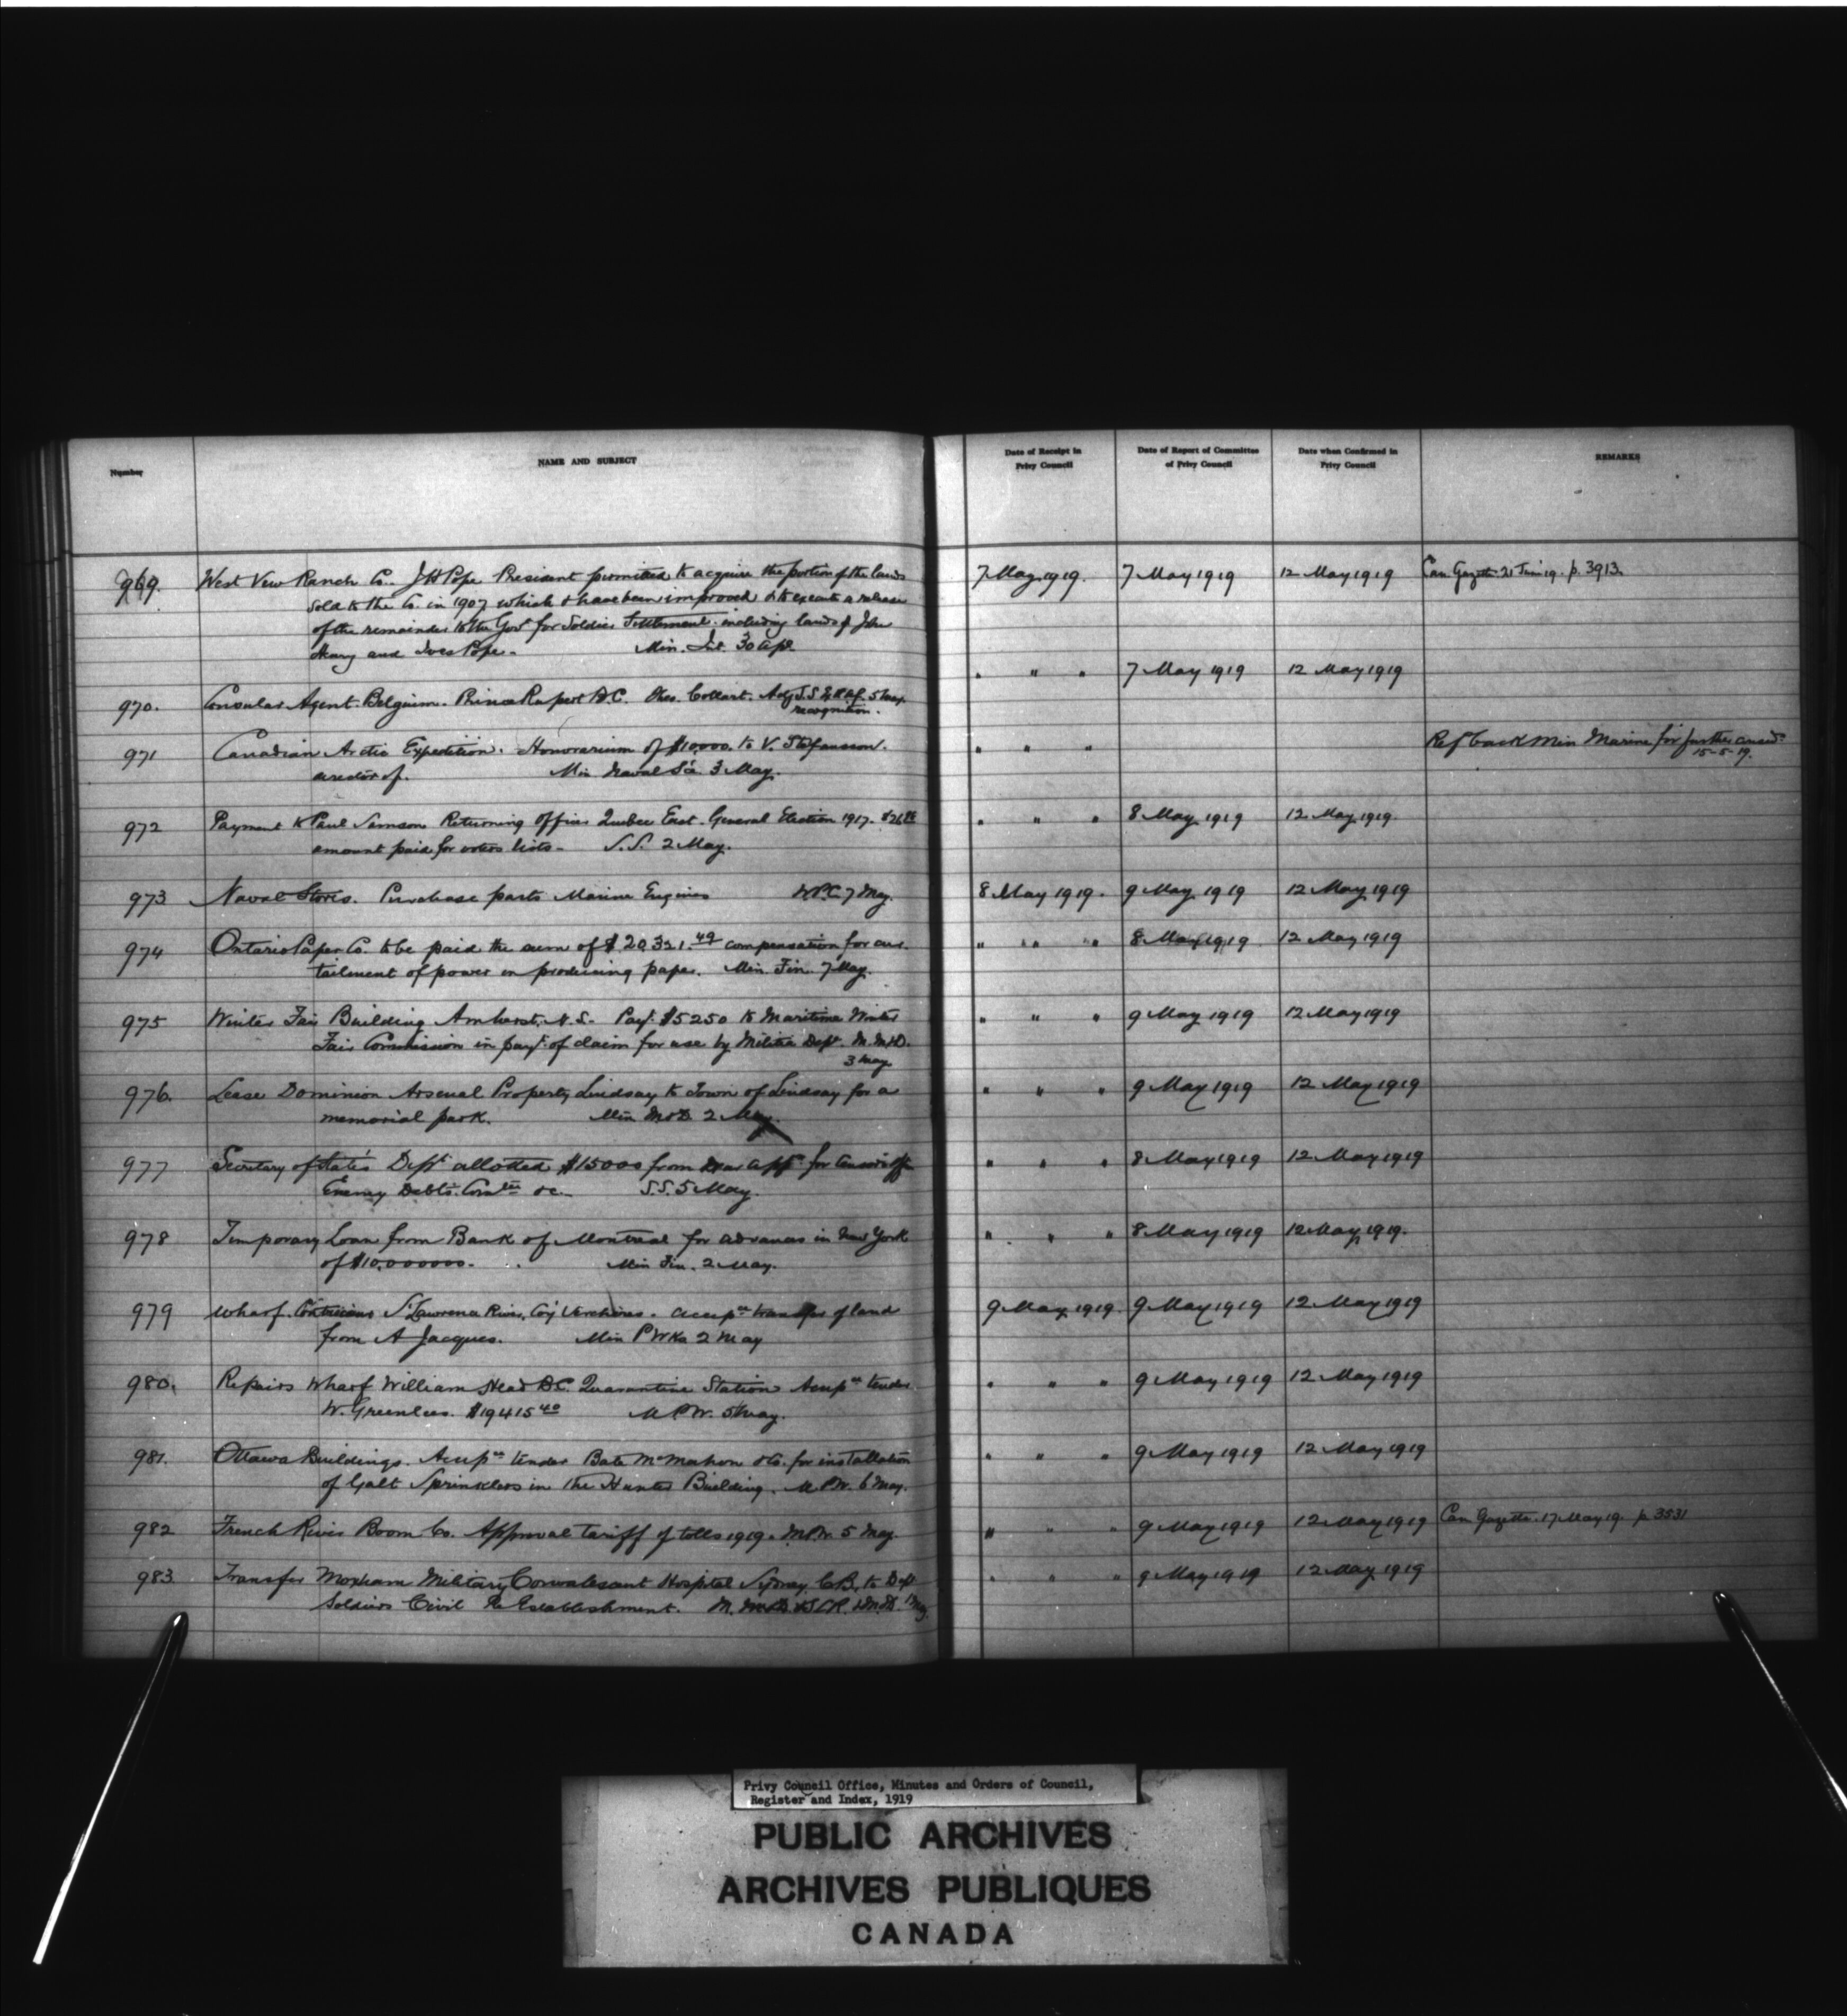 Number
NAME AND SUBJECT
Date of Receipt in
Privy Council
Date of Report of Committee
of Privy Council
Date when Confirmed in
Privy Council
REMARKS
969. West View Ranch Co. J H Pope President permitted to acquire the portion of the lands 7 May 1919. 7 May 1919 12 May 1919 Can Gazette 21 June 19. p. 3913.
sold to the Co. in 1907 which have been improved & to execute a release
of the remainder to the Govt for Soldier Settlement including lands of John
Henry and Ives Pope. Min. Int. 30 Apl.
" " " 7 May 1919 12 May 1919
970. Consular Agent. Belgium. Prince Rupert B.C. Theo. Collart. S.S. Ex Af. 5 May.
recognition.
971 Canadian Arctic Expedition. Honorarium of $10000. to V. Stefansson. " " " Ref back Min Marine for further consdn
director of. Min Naval Sce 3 May. 15-5-19.
972 Payment to Paul Samson Returning Officer Quebec East. General Election 1917. " " " 8 May 1919 12 May 1919
amount paid for voters lists - S.S. 2 May.
973 Naval Stores. Purchase parts Marine Engines W.P.C. 7 May. 8 May 1919. 9 May 1919 12 May 1919
974 Ontario Paper Co. to be paid the sum of $20321.49 compensation for cur- " " " 8 May 1919 12 May 1919
tailment of power in producing paper. Min. Fin. 7 May.
975 Winter Fair Building Amherst, N.S. - Payt $5250 to Maritime Winter " " " 9 May 1919 12 May 1919
Fair Commission in payt of claim for use by Militia Dept. M. M&D.
3 May
976. Lease Dominion Arsenal Property Lindsay to Town of Lindsay for a " " " 9 May 1919 12 May 1919
memorial park. Min M&D 2 May.
977 Secretary of State's Dept allotted $15000 from War appn for Censor's off " " " 8 May 1919 12 May 1919
Enemy Debts Comtee &c. S.S. 5 May.
978 Temporary Loan from Bank of Montreal for advances in New York " " " 8 May 1919 12 May 1919.
of $10,000000. Min Fin. 2 May.
979 Wharf. Contrecoeur St Lawrence River, Coy Vercheres. Accepce transfer of land 9 May 1919. 9 May 1919 12 May 1919
from A Jacques. Min P Wks 2 May
980. Repairs Wharf William Head B.C. Quarantine Station Accepce tender " " " 9 May 1919 12 May 1919
W. Greenlees. $19415 40 M P W. 5 May.
981. Ottawa Buildings. Accepce tender Bate McMahon & Co. for installation " " " 9 May 1919 12 May 1919
of Galt Sprinklers in the Hunter Building. M P W. 6 May.
982 French River Boom Co. Approval tariff of tolls 1919. M.P.W. 5 May. " " " 9 May 1919 12 May 1919 Can Gazette. 17 May 19. p. 3531
983. Transfer Moxham Military Convalescent Hospital Sydney C.B. to Dept " " " 9 May 1919 12 May 1919
Soldiers Civil Re Establishment.
Privy Council Office, Minutes and Orders of Council,
Register and Index, 1919
PUBLIC ARCHIVES
ARCHIVES PUBLIQUES
CANADA